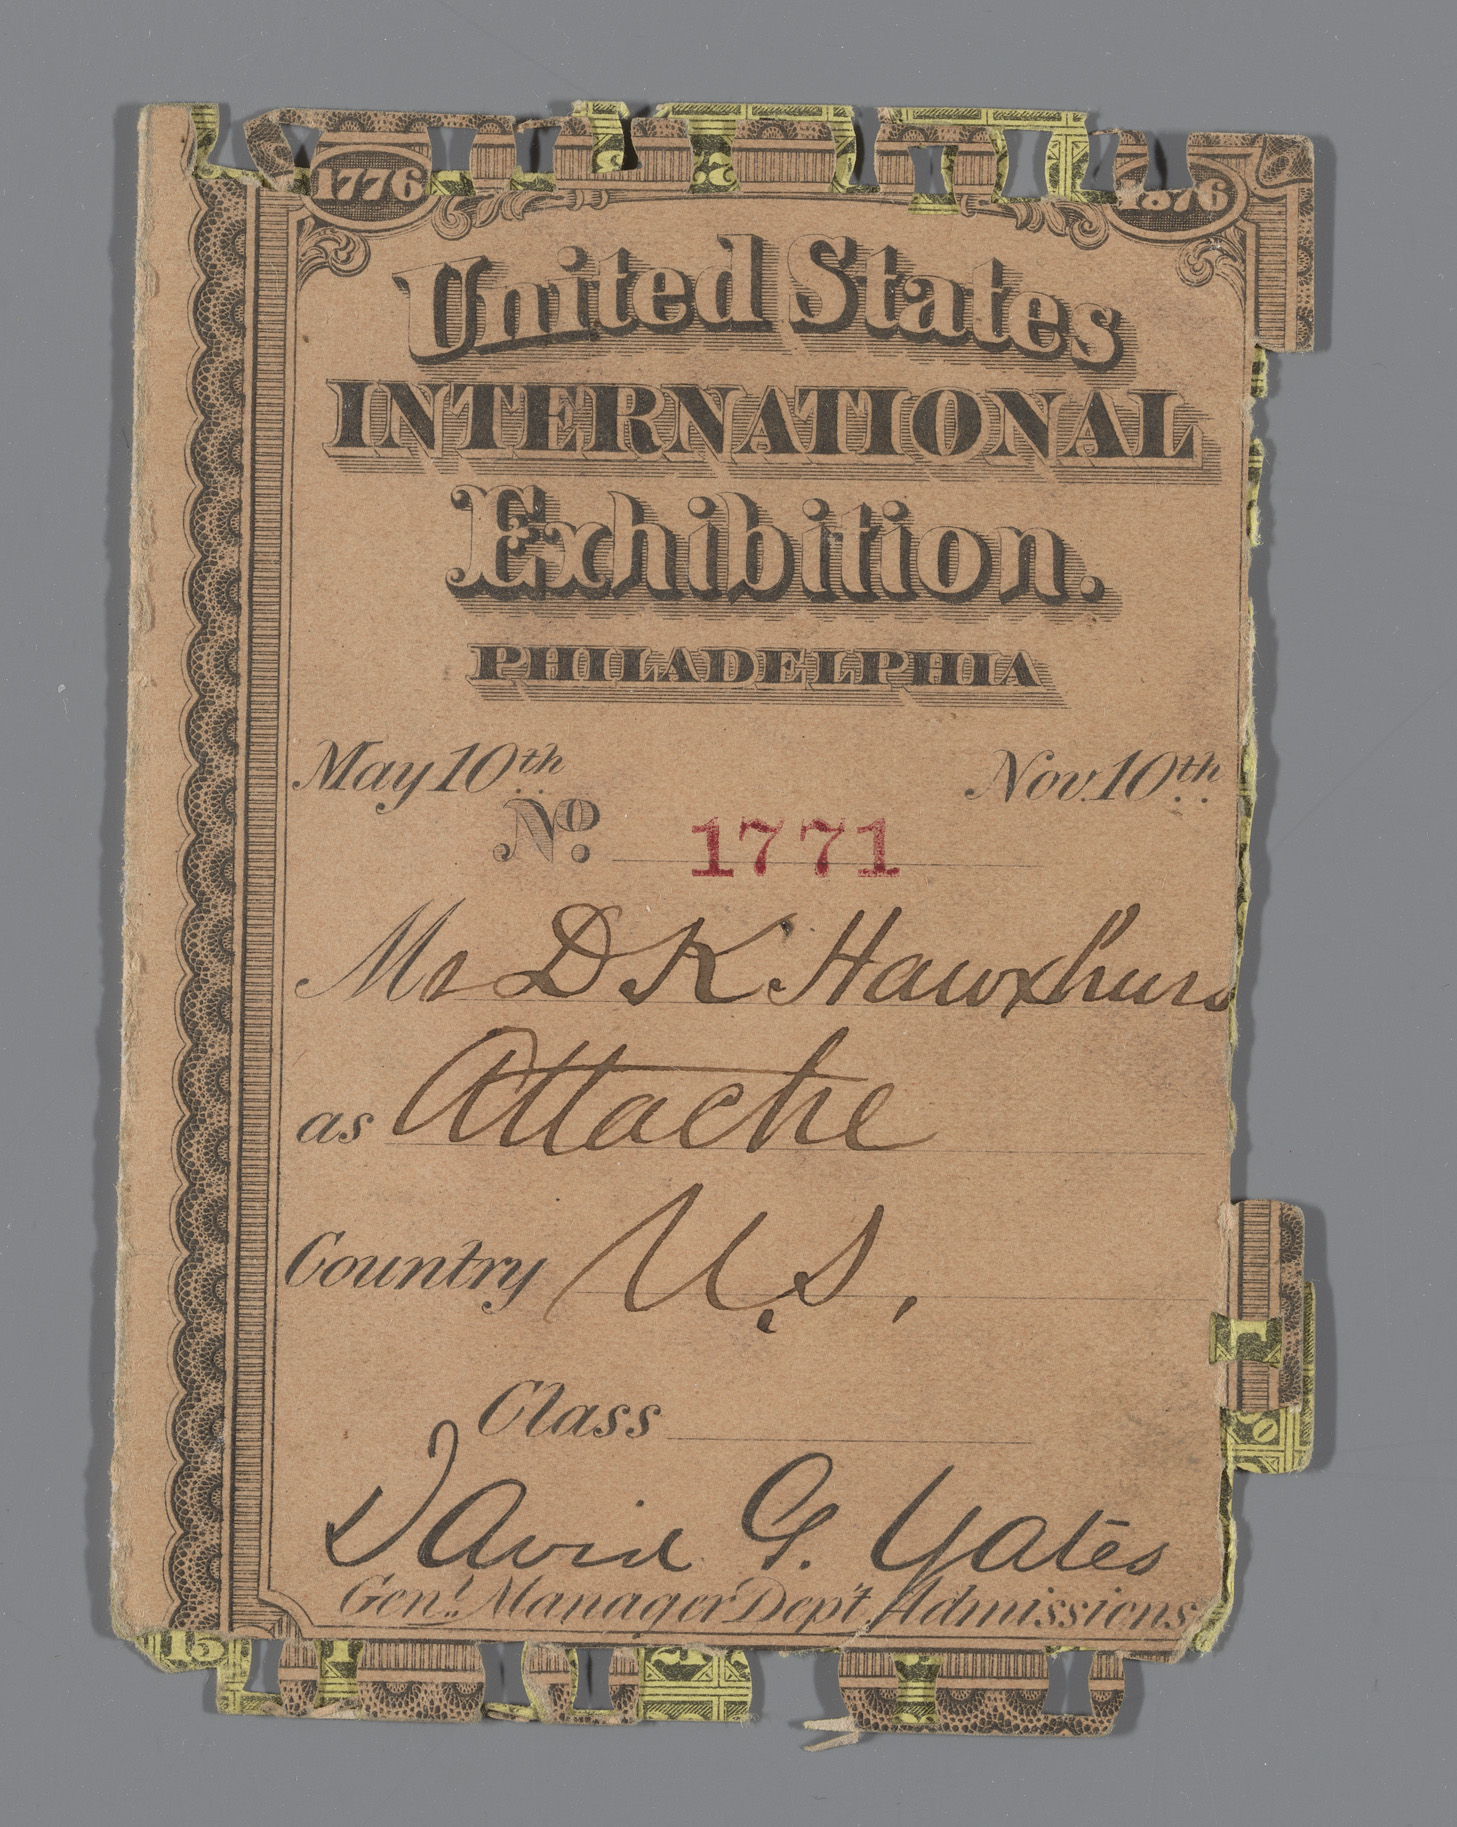 1776 1876
United States
INTERNATIONAL
Exhibition.
PHILADELPHIA
May 10th Nov. 10th
No. 1771
Mr D K Hawxhurs
as Attache
Country U.S.
Class
David G. Yates
Genl. Manager Dep't Admissions
15 1